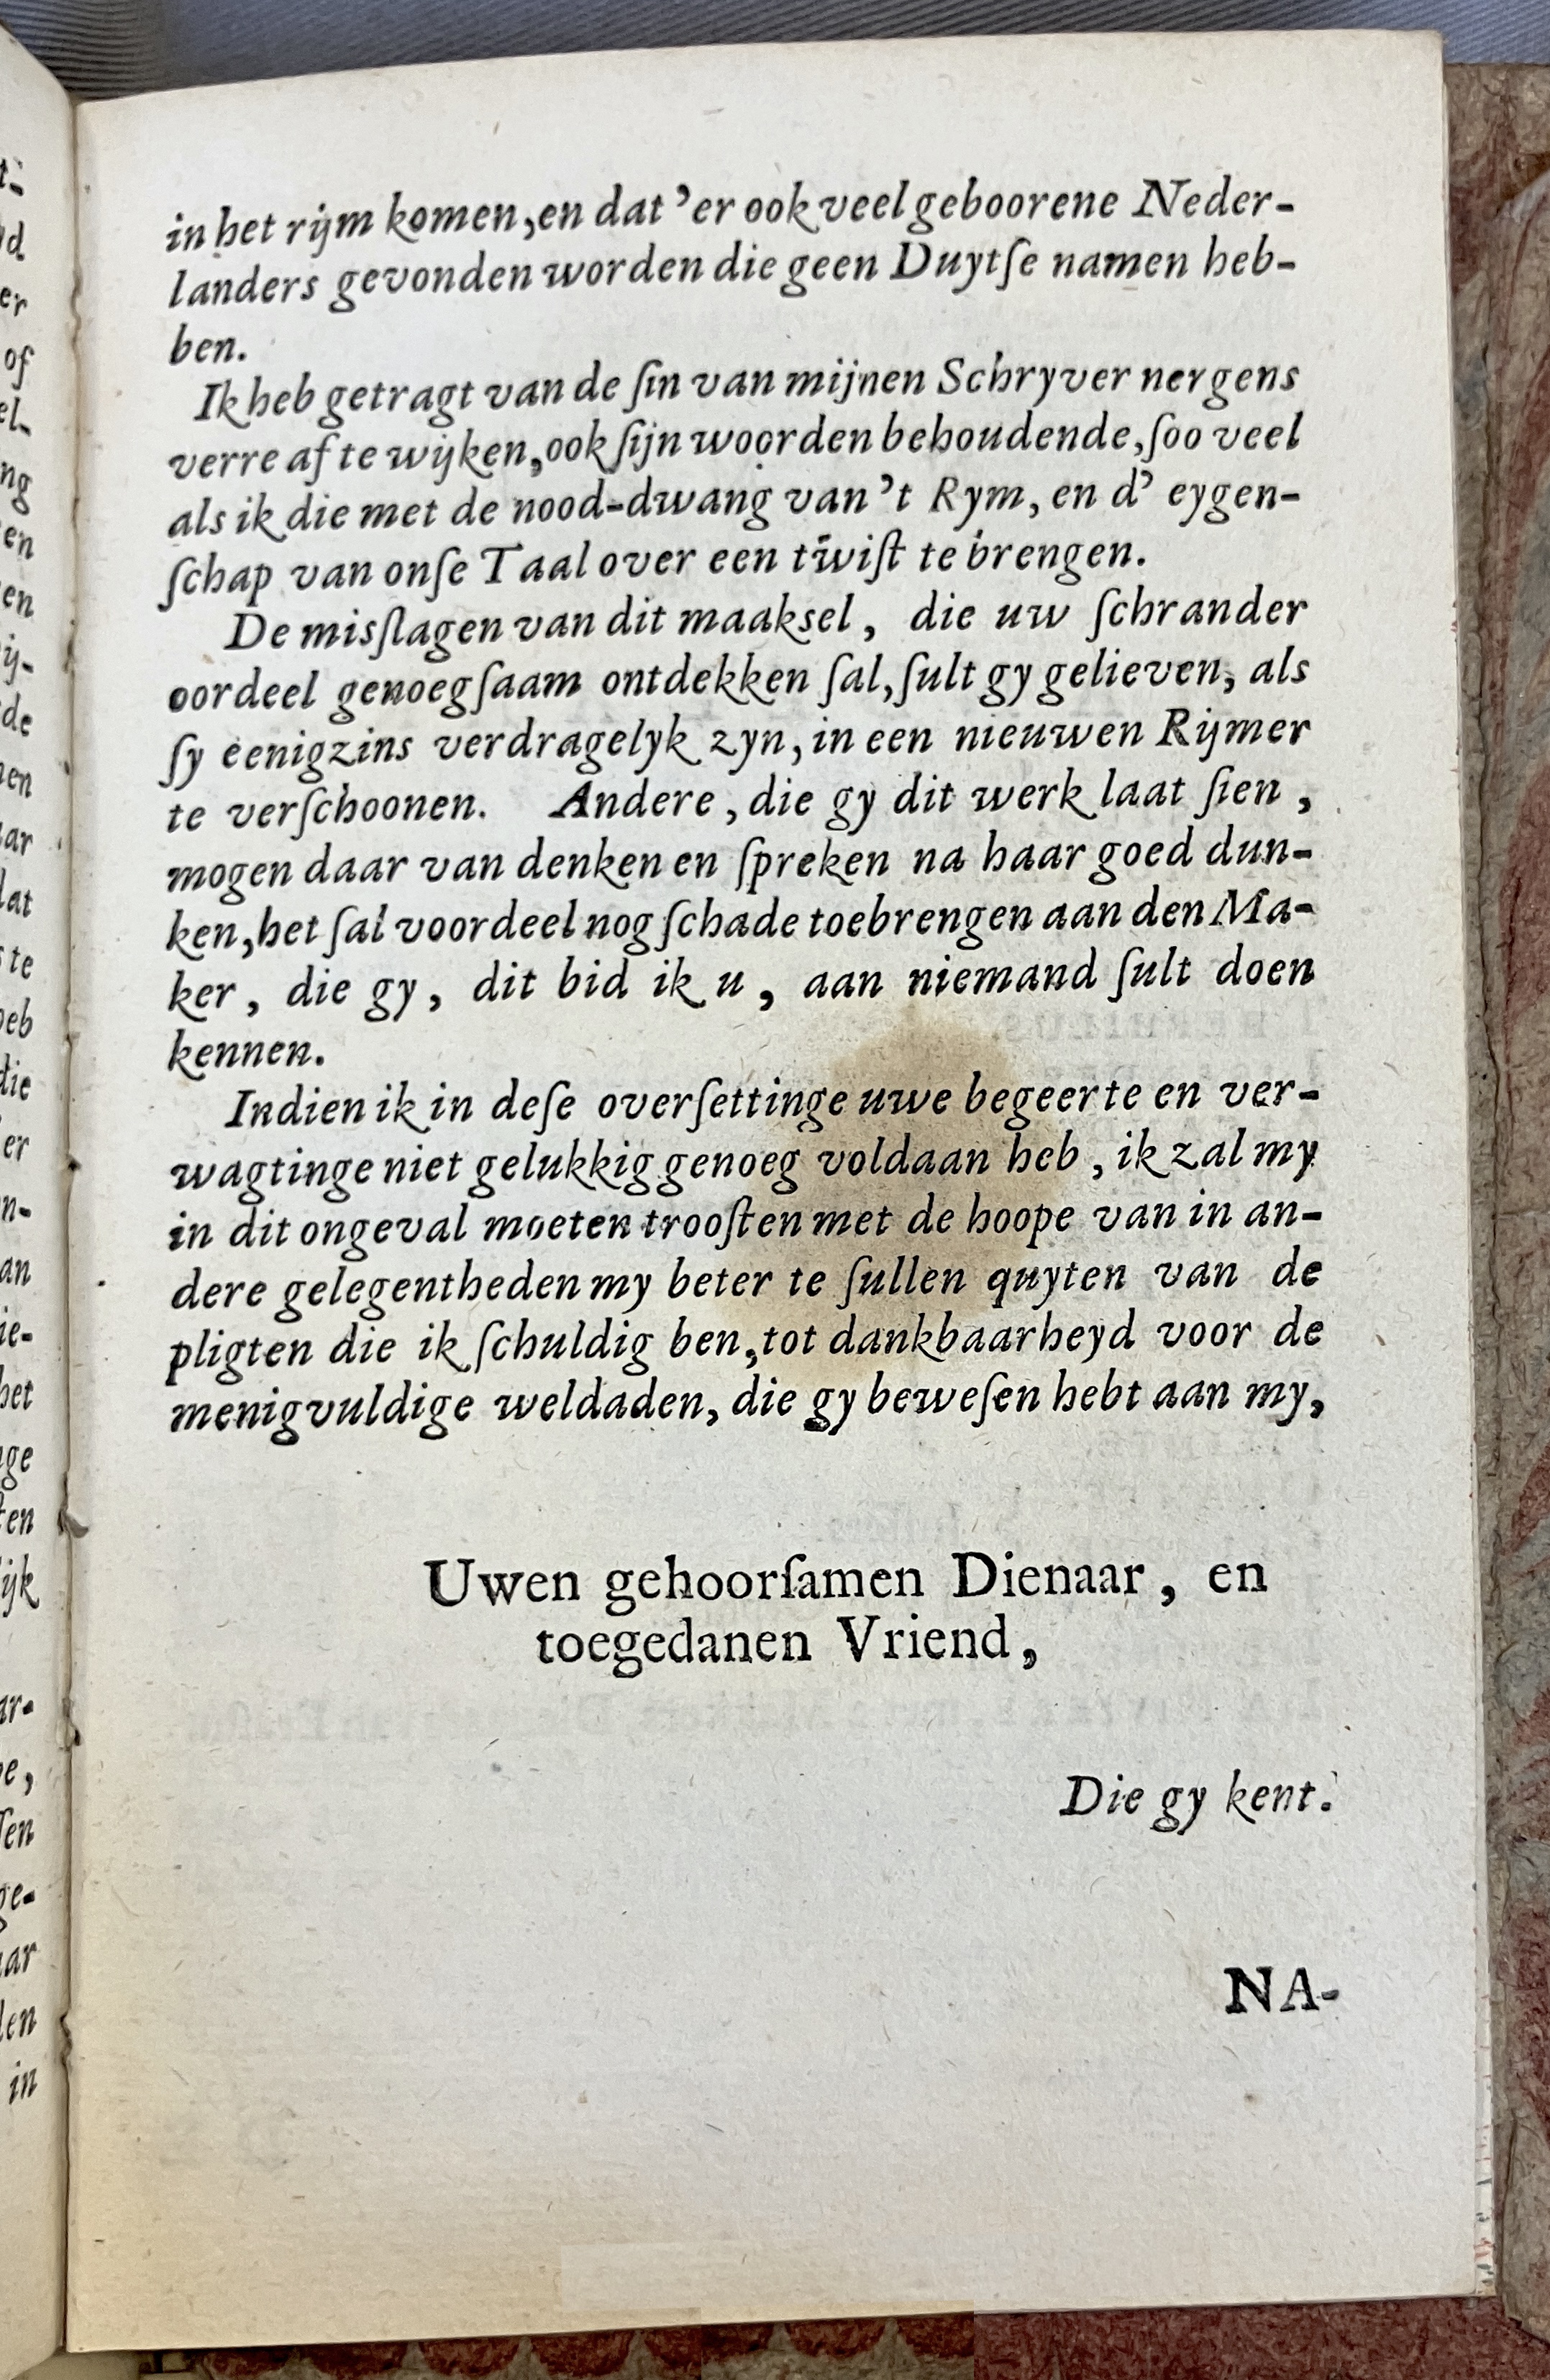 in het rijm komen, en dat 'er ook veel geboorene Neder-
landers gevonden worden die geen Duytſe namen heb-
ben.
Ik heb getragt van de ſin van mijnen Schryver nergens
verre af te wijken, ook ſijn woorden behoudende, ſoo veel
als ik die met de nood-dwang van 't Rym, en d' eygen-
ſchap van onſe Taal over een twiſt te brengen.
De misſlagen van dit maaksel, die uw ſchrander
oordeel genoegſaam ontdekken ſal, ſult gy gelieven, als
ſy eenigzins verdragelyk zyn, in een nieuwen Rijmer
te verſchoonen. Andere, die gy dit werk laat ſien,
mogen daar van denken en ſpreken na haar goed dun-
ken, het ſal voordeel nog ſchade toebrengen aan den Ma-
ker, die gy, dit bid ik u, aan niemand ſult doen
kennen.
Indien ik in deſe overſettinge uwe begeerte en ver-
wagtinge niet gelukkig genoeg voldaan heb, ik zal my
in dit ongeval moeten trooſten met de hoope van in an-
dere gelegentheden my beter te ſullen quyten van de
pligten die ik ſchuldig ben, tot dankbaarheyd voor de
menigvuldige weldaden, die gy beweſen hebt aan my,
Uwen gehoorſamen Dienaar, en
toegedanen Vriend,
Die gy kent.
NA-